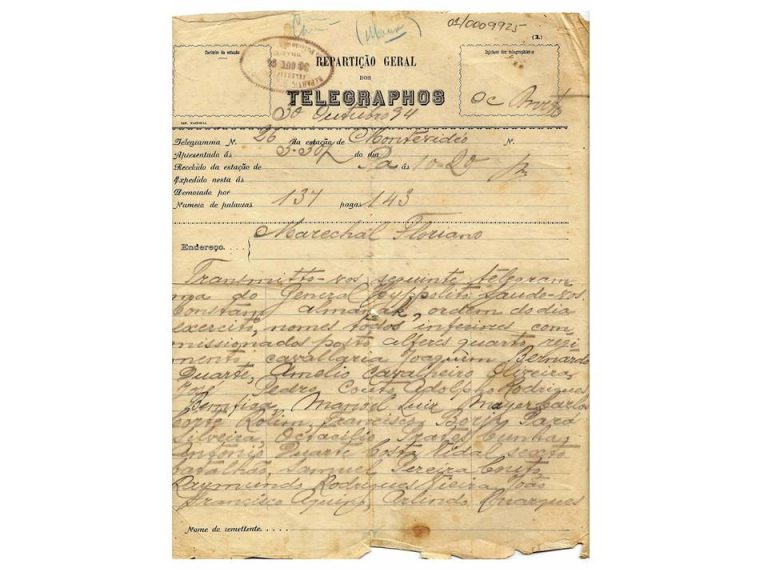 01/0009925
(1.)
Carimbo da estação
REPARTIÇÃO GERAL
DOS
TELEGRAPHOS
30 Outubro 94
IMP. NACIONAL
Telegramma N. 26 da estação de Montevidéo N.
Apresentado ás 3.30 do dia
Recebido da estação de Pa ás 10-20
Expedido nesta ás
Demorado por
Numero de palavras 137 pagas 143
Marechal Floriano
Endereço....
Transmitto-vos seguinte telegram
ma do General Hyppolito, saudo-vos.
Constam almanak, ordem do dia
exercito, nomes todos inferiores com
missionados posto alferes quarto regi
mento cavallaria Joaquim Bernardo
Duarte, Amelio Cavalheiro Oliveira,
José Pedro Couto, Adolpho Rodrigues
Manoel Luiz Mayer Carlos
Rolim, Francisco Borja Pará
Silveira, Octacilio Prates Cunha,
Antonio Duarte Costa Vidal sexto
batalhão, Samuel Pereira
Raymundo Rodrigues Vieira João
Francisco Arlindo Marques
Nome do remettente.....